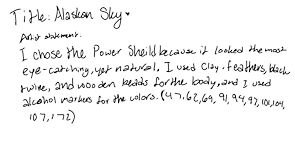 Title: Alaskan Sky
Artist statement.
I chose the Power Sheild because it looked the most
eye-catching, yet natural. I used Clay, feathers, black
twine, and wooden beads for the body, and I used
alcohol markers for the colors. (47, 62, 69, 91, 94, 97, 101, 104,
107, 172)